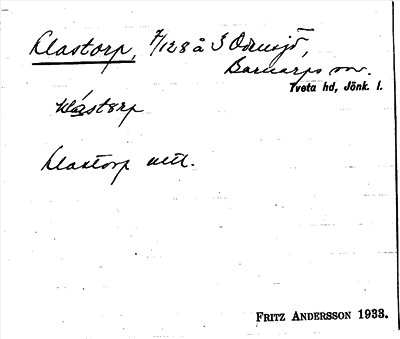 Klastorp, 7/128 å S Ödensjö,
Barnarps sn.
Tveta hd, Jönk. l.
klástorp
Klastorp
FRITZ ANDERSSON 1933.